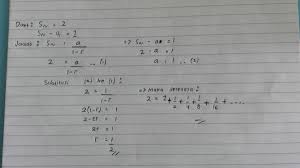 Diket : S∞ = 2
S∞ - a = 1
Jawab : S∞ = a/(1-r)
2 = a/(1-r) ... (1)
=> S∞ - a = 1
2 - a = 1
a = 1 ... (2)
Substitusi (2) ke (1) :
2 = 1/(1-r)
2(1-r) = 1
2-2r = 1
2r = 1
r = 1/2 //
=> Maka deretnya :
2 = 1 + 1/2 + 1/4 + 1/8 + 1/16 + ....